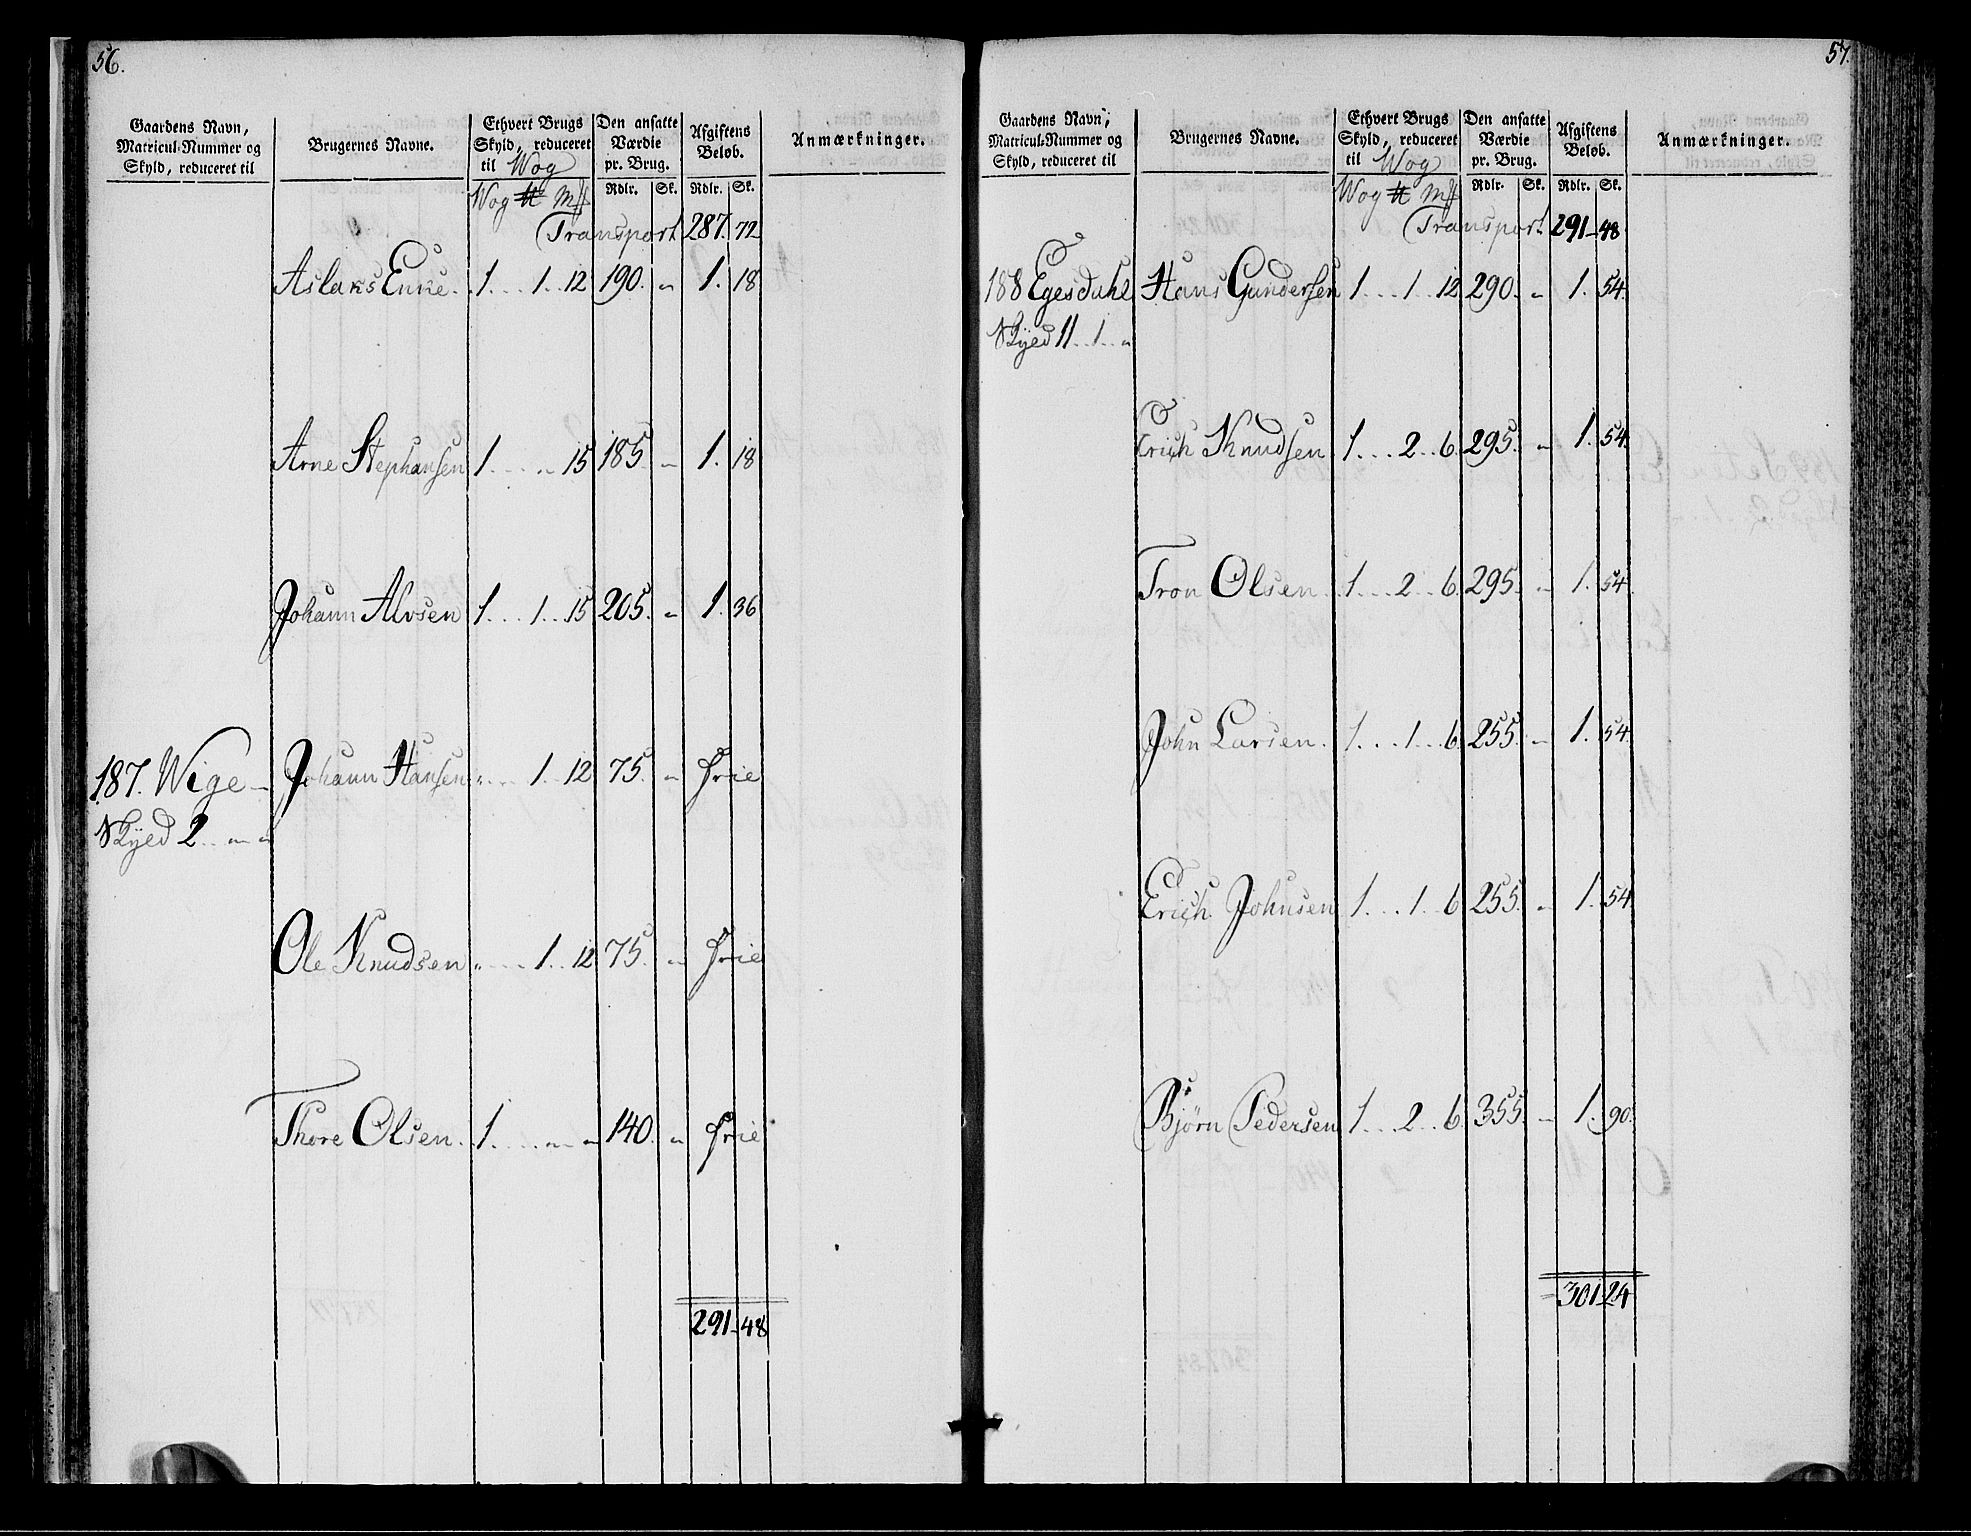 56.
Gaardens Navn, Matricul-Nummer og Skyld, reduceret til | Brugernes Navne. | Ethvert Brugs Skyld, reduceret til Wog | Den ansatte Værdie pr. Brug. | Afgiftens Beløb. | Anmærkninger.
Wog ℔ Mk | Rdlr. | Sk. | Rdlr. | Sk.
Transport 287. 72
Aslaks Enke. 1...1..12 190. " 1. 18
Arne Stephansen 1....."..15 185. " 1. 18
Johann Alvsen 1...1..15 205. " 1. 36
187. Wige Johann Hansen "...1..12 75. " Frie
Skyld 2.. " "
Ole Knudsen "....1..12 75. " Frie
Thore Olsen. 1....." " 140. " Frie
291-48
57.
Gaardens Navn, Matricul-Nummer og Skyld, reduceret til | Brugernes Navne. | Ethvert Brugs Skyld, reduceret til Wog | Den ansatte Værdie pr. Brug. | Afgiftens Beløb. | Anmærkninger.
Wog ℔ Mk | Rdlr. | Sk. | Rdlr. | Sk.
Transport 291-48
188 Egesdahl Hans Gundersen 1...1..12 290. " 1. 54.
Skyld 11..1.. "
Erich Knudsen 1...2..6. 295. " 1. 54.
Tron Olsen. 1...2..6. 295. " 1. 54.
John Larsen. 1...1..6. 255. " 1. 54.
Erich Johnsen 1...1..6 255. " 1. 54.
Bjørn Pedersen 1...2..6. 355. " 1. 90.
301 24